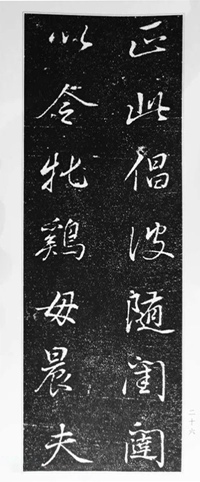 正此倡彼隨閨闈
以令牝鷄毋晨夫
二十六